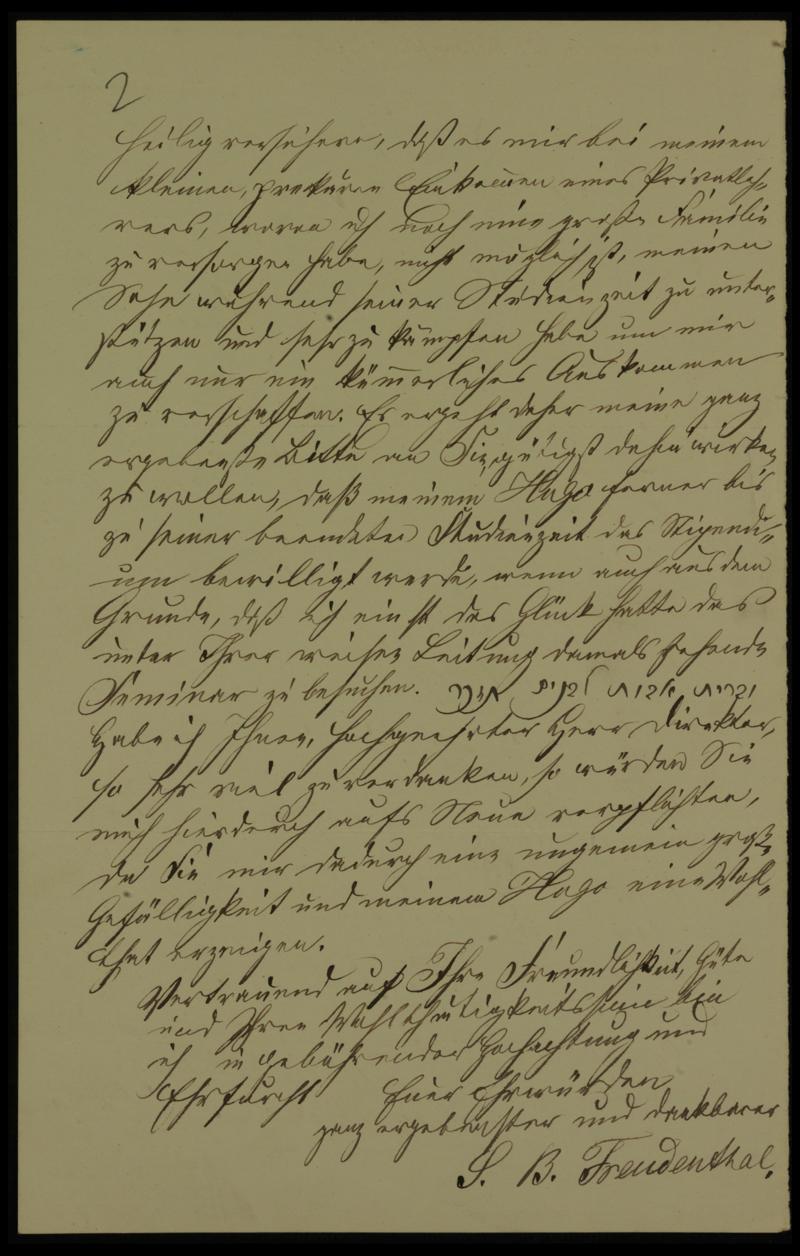 2
heilig versichern, daß es mir bei meinem
kleinen, prekären Einkommen eines Privatleh-
rers, wovon ich noch eine große Familie
zu versorgen habe, nicht möglich ist, meinen
Sohn während seiner Studienzeit zu unter-
stützen und sehr zu kämpfen habe um mir
auch nur ein kümmerliches Auskommen
zu verschaffen. Es ergeht daher meine ganz
ergebenste Bitte an Sie, gütigst dahin wirken
zu wollen, daß meinem Hugo ferner bis
zu seiner beendeten Studienzeit das Stipendi-
um bewilligt werde, wenn auch aus dem
Grunde, daß ich einst das Glück hatte das
unter Ihrer weisen Leitung damals stehende
Seminar zu besuchen. אזכר לבנים אבות וברית
Habe ich Ihnen, hochgeehrter Herr Direktor,
so sehr viel zu verdanken, so würden Sie
mich hierdurch aufs Neue verpflichten,
da Sie mir dadurch eine ungemein große
Gefälligkeit und meinem Hugo eine Wohl-
that erzeigen.
Vertrauend auf Ihre Freundlichkeit, Güte
und Ihren Wohlthätigkeitssinn bin
ich in gebührender Hochachtung und
Ehrfurcht Euer Ehrwürden
ganz ergebenster und dankbarer
S. B. Freudenthal.